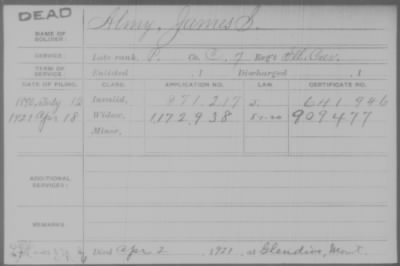 DEAD
NAME OF SOLDIER: Almy, James S.
SERVICE: Late rank, P. Co. C, 7 Reg't Ill. Cav.
TERM OF SERVICE: Enlisted , 1 Discharged , 1
DATE OF FILING. CLASS. APPLICATION NO. LAW. CERTIFICATE NO.
1890, July 12 Invalid, 871.217 641.946
1921 Apr 18 Widow, 1172938 909477
Minor,
ADDITIONAL SERVICES:
REMARKS:
Died Apr 2, 1921, at Glendive, Mont.